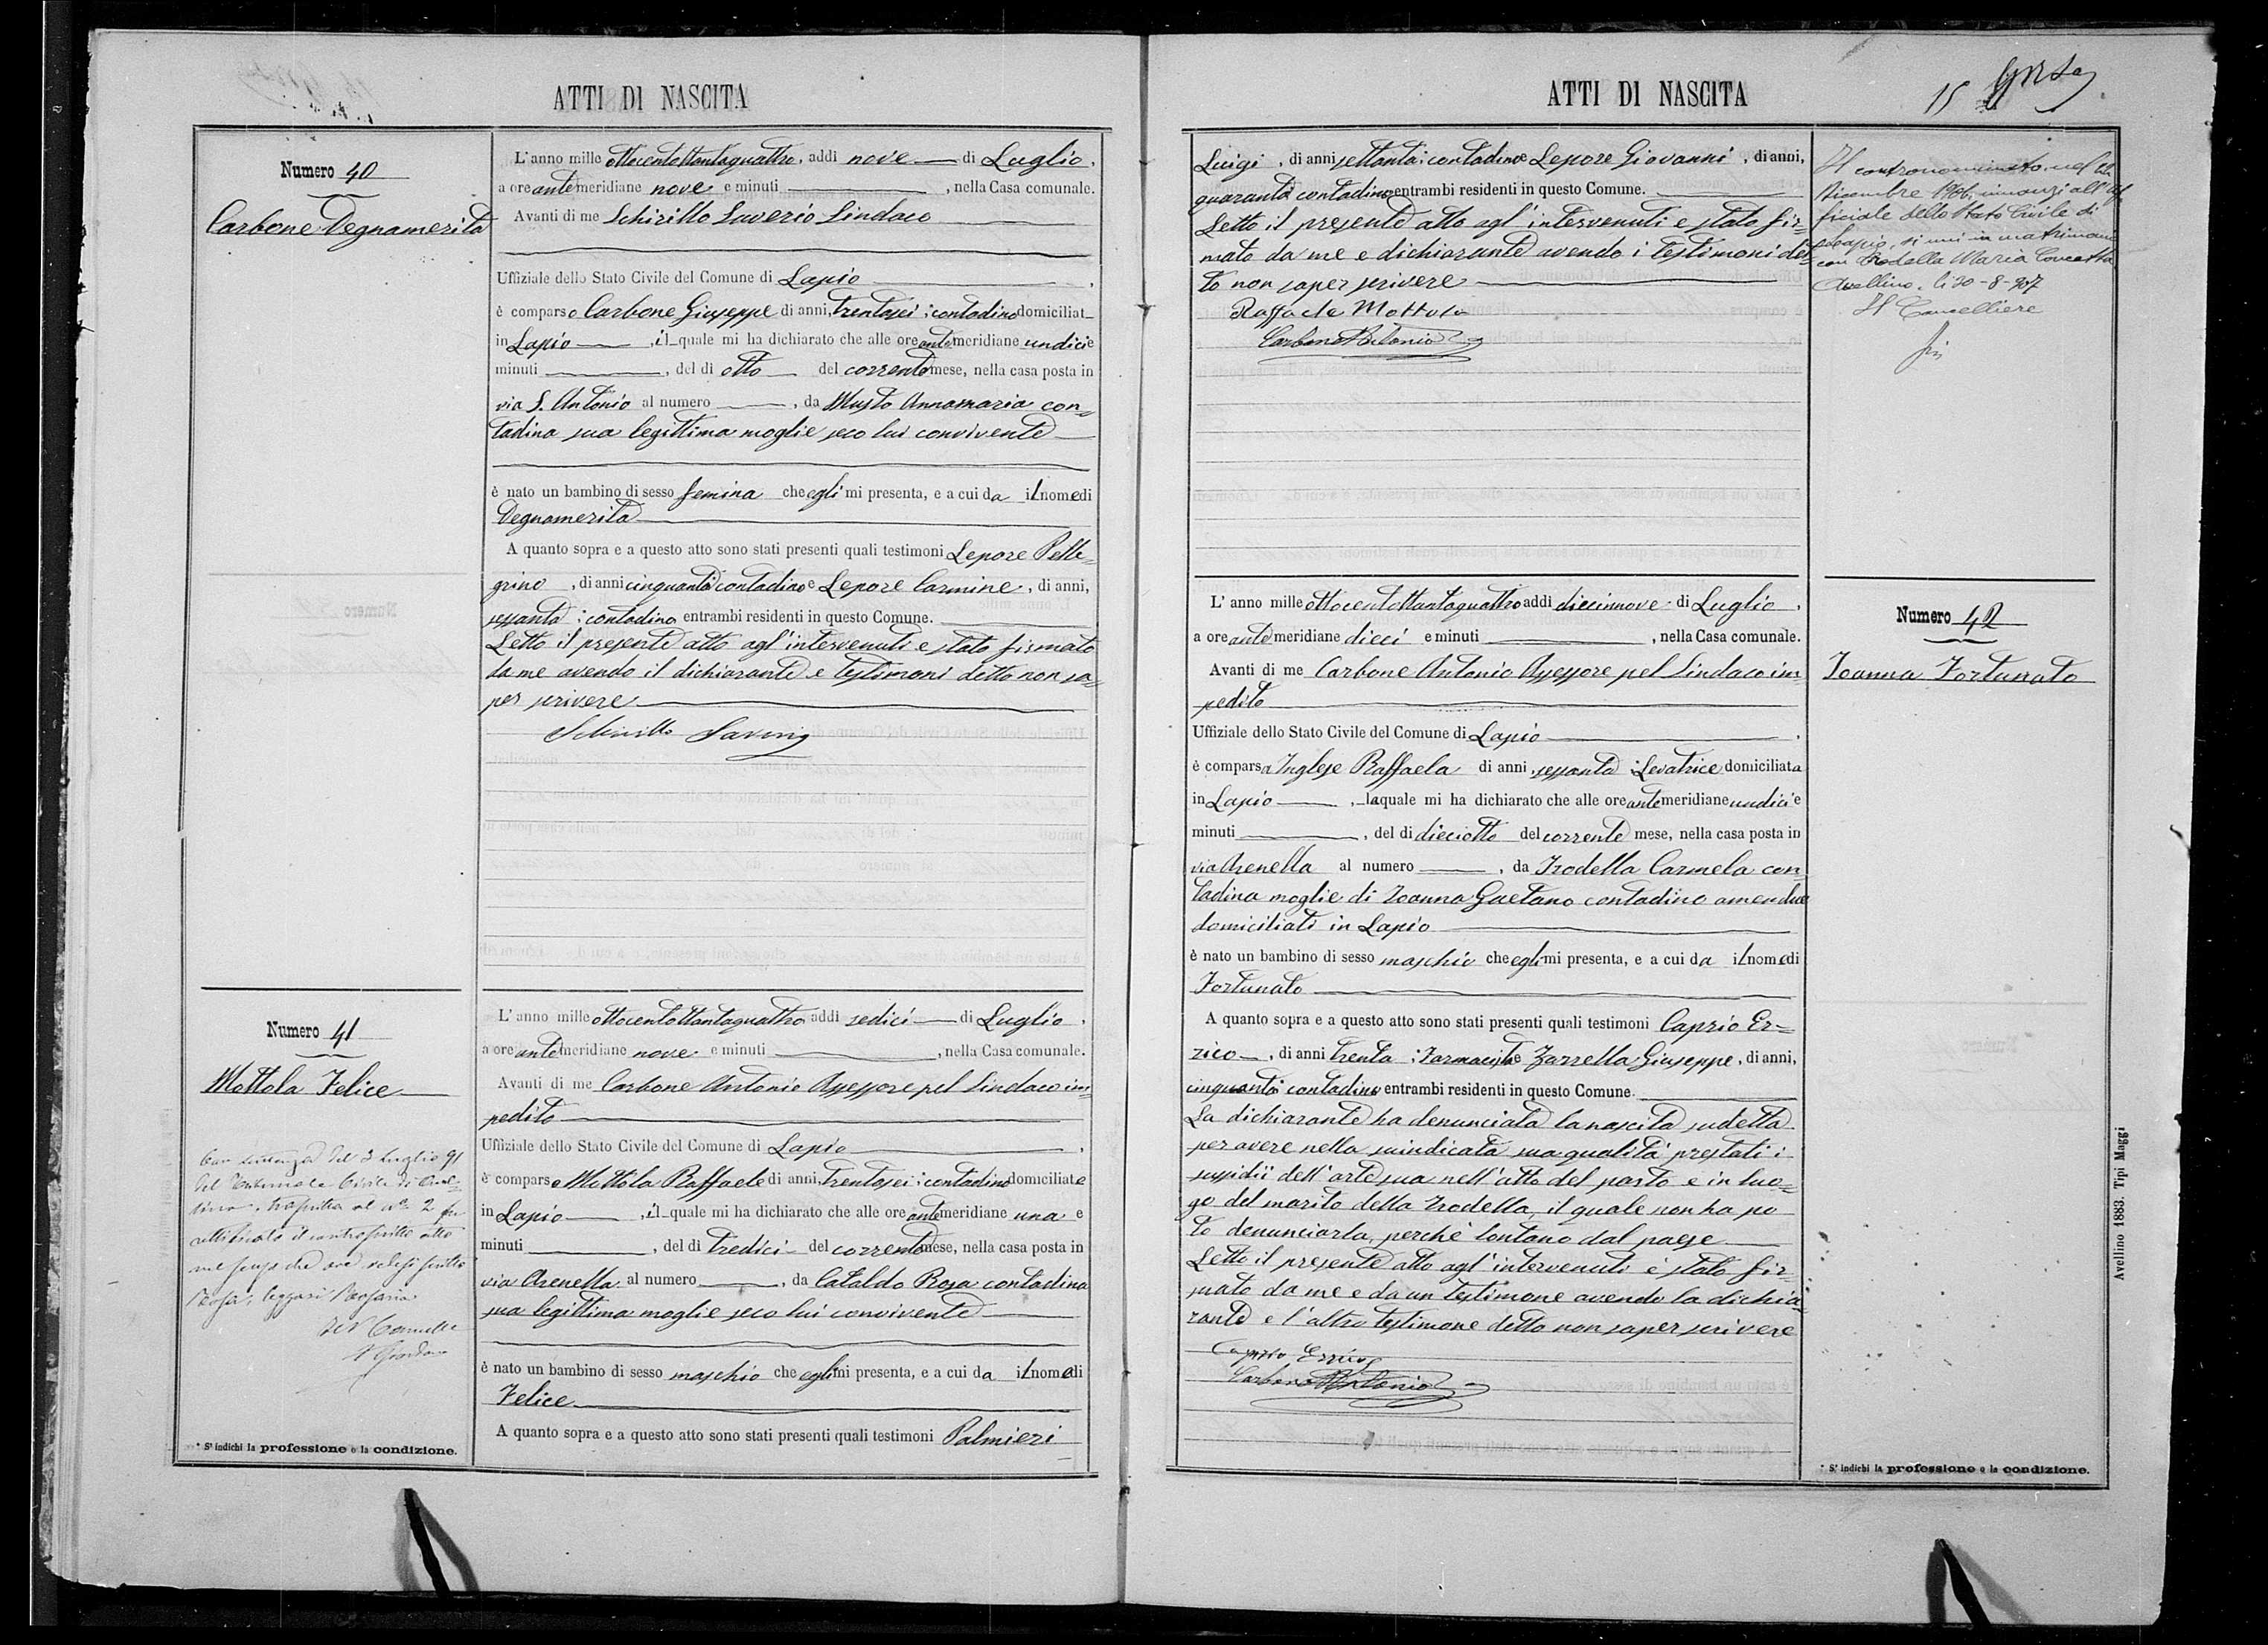 ATTI DI NASCITA
Numero 40
Carbone Degnamerita
L'anno mille ottocentottantaquattro, addì nove di Luglio,
a ore antemeridiane nove e minuti , nella Casa comunale.
Avanti di me Schirillo Saverio Sindaco
Uffiziale dello Stato Civile del Comune di Lapio ,
è comparso Carbone Giuseppe di anni, trentasei; contadino domiciliat
in Lapio , il quale mi ha dichiarato che alle ore antemeridiane undici e
minuti , del dì otto del corrente mese, nella casa posta in
via S. Antonio al numero , da Musto Annamaria con=
tadina sua legittima moglie seco lui convivente
è nato un bambino di sesso femina che egli mi presenta, e a cui da il nome di
Degnamerita
A quanto sopra e a questo atto sono stati presenti quali testimoni Lepore Pelle=
grino , di anni cinquanta contadino e Lepore Carmine, di anni,
sessanta; contadino entrambi residenti in questo Comune.
Letto il presente atto agl'intervenuti e stato firmato
da me avendo il dichiarante e testimoni detto non sa=
per scrivere
Schirillo Saverio
Numero 41
Mottola Felice
L'anno mille ottocentottantaquattro addì sedici di Luglio,
a ore antemeridiane nove e minuti , nella Casa comunale.
Avanti di me Carbone Antonio Assessore pel Sindaco im=
pedito
Uffiziale dello Stato Civile del Comune di Lapio ,
è comparso Mottola Raffaele di anni, trentasei; contadino domiciliato
in Lapio , il quale mi ha dichiarato che alle ore antemeridiane una e
minuti , del dì tredici del corrente mese, nella casa posta in
via Arenella al numero , da Cataldo Rosa contadina
sua legittima moglie seco lui convivente
è nato un bambino di sesso maschio che egli mi presenta, e a cui da il nome di
Felice
A quanto sopra e a questo atto sono stati presenti quali testimoni Palmieri
Con sentenza del 3 Luglio 91
del Tribunale Civile di Avel=
lino, trascritta al n° 2 fu
rettificato il controscritto atto
nel senso che ove
Rosa, leggasi Rosaria
* S'indichi la professione o la condizione.
ATTI DI NASCITA
15
Luigi , di anni settanta; contadino e Lepore Giovanni , di anni,
quaranta contadino entrambi residenti in questo Comune.
Letto il presente atto agl'intervenuti e stato fir=
mato da me e dichiarante avendo i testimoni det=
to non saper scrivere
Raffaele Mottola
Carbone Antonio
Il contronominato, nel
Dicembre 1906, innanzi all'Uf
ficiale dello Stato Civile di
Lapio, si unì in matrimonio
con Trodella Maria Concetta
Avellino, li 20-8-907
Il Cancelliere
L'anno mille ottocentottantaquattro addì diecinnove di Luglio,
a ore antemeridiane dieci e minuti , nella Casa comunale.
Avanti di me Carbone Antonio Assessore pel Sindaco im=
pedito
Uffiziale dello Stato Civile del Comune di Lapio .
è comparsa Inglese Raffaela di anni, sessanta; Levatrice domiciliata
in Lapio , la quale mi ha dichiarato che alle ore antemeridiane undici e
minuti , del dì dieciotto del corrente mese, nella casa posta in
via Arenella al numero , da Trodella Carmela con=
tadina moglie di Ioanna Gaetano contadino amendue
domiciliati in Lapio
è nato un bambino di sesso maschio che egli mi presenta, e a cui da il nome di
Fortunato
A quanto sopra e a questo atto sono stati presenti quali testimoni Caprio Er=
rico , di anni trenta; Farmacista e Zarrella Giuseppe, di anni,
cinquanta contadino entrambi residenti in questo Comune.
La dichiarante ha denunciata la nascita sudetta
per avere nella suindicata sua qualità prestati i
sussidii dell'arte sua nell'atto del parto e in luo=
go del marito della Trodella, il quale non ha po
to denunciarla, perchè lontano dal paese
Letto il presente atto agl'intervenuti e stato fir=
mato da me e da un testimone avendo la dichia=
rante e l'altro testimone detto non saper scrivere
Caprio Errico
Carbone Antonio
Numero 42
Ioanna Fortunato
Avellino 1883. Tipi Maggi
* S'indichi la professione o la condizione.